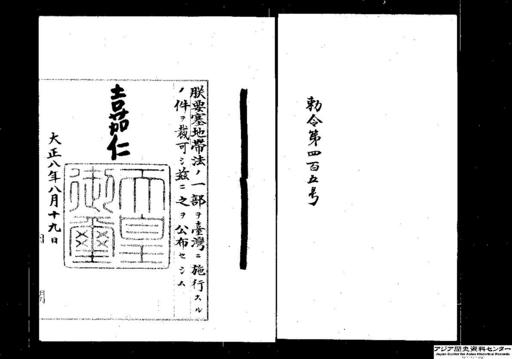 勅令第四百五号
朕要塞地帯法ノ一部ヲ臺灣ニ施行スル
ノ件ヲ裁可シ玆ニ之ヲ公布セシム
嘉仁
天皇
御璽
大正八年八月十九日
アジア歴史資料センター
Japan Center for Asian Historical Records